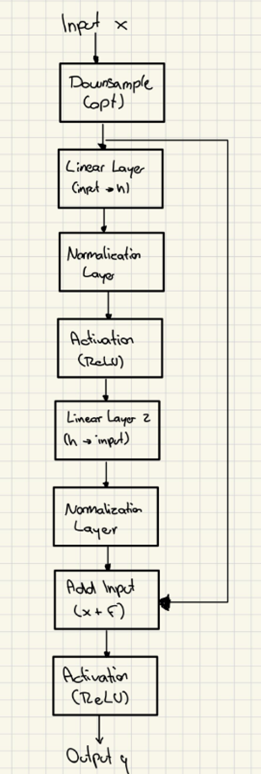 Input x
Downsample
(opt)
Linear Layer
(input → h)
Normalization
Layer
Activation
(ReLU)
Linear Layer 2
(h → input)
Normalization
Layer
Add Input
(x + F)
Activation
(ReLU)
Output y